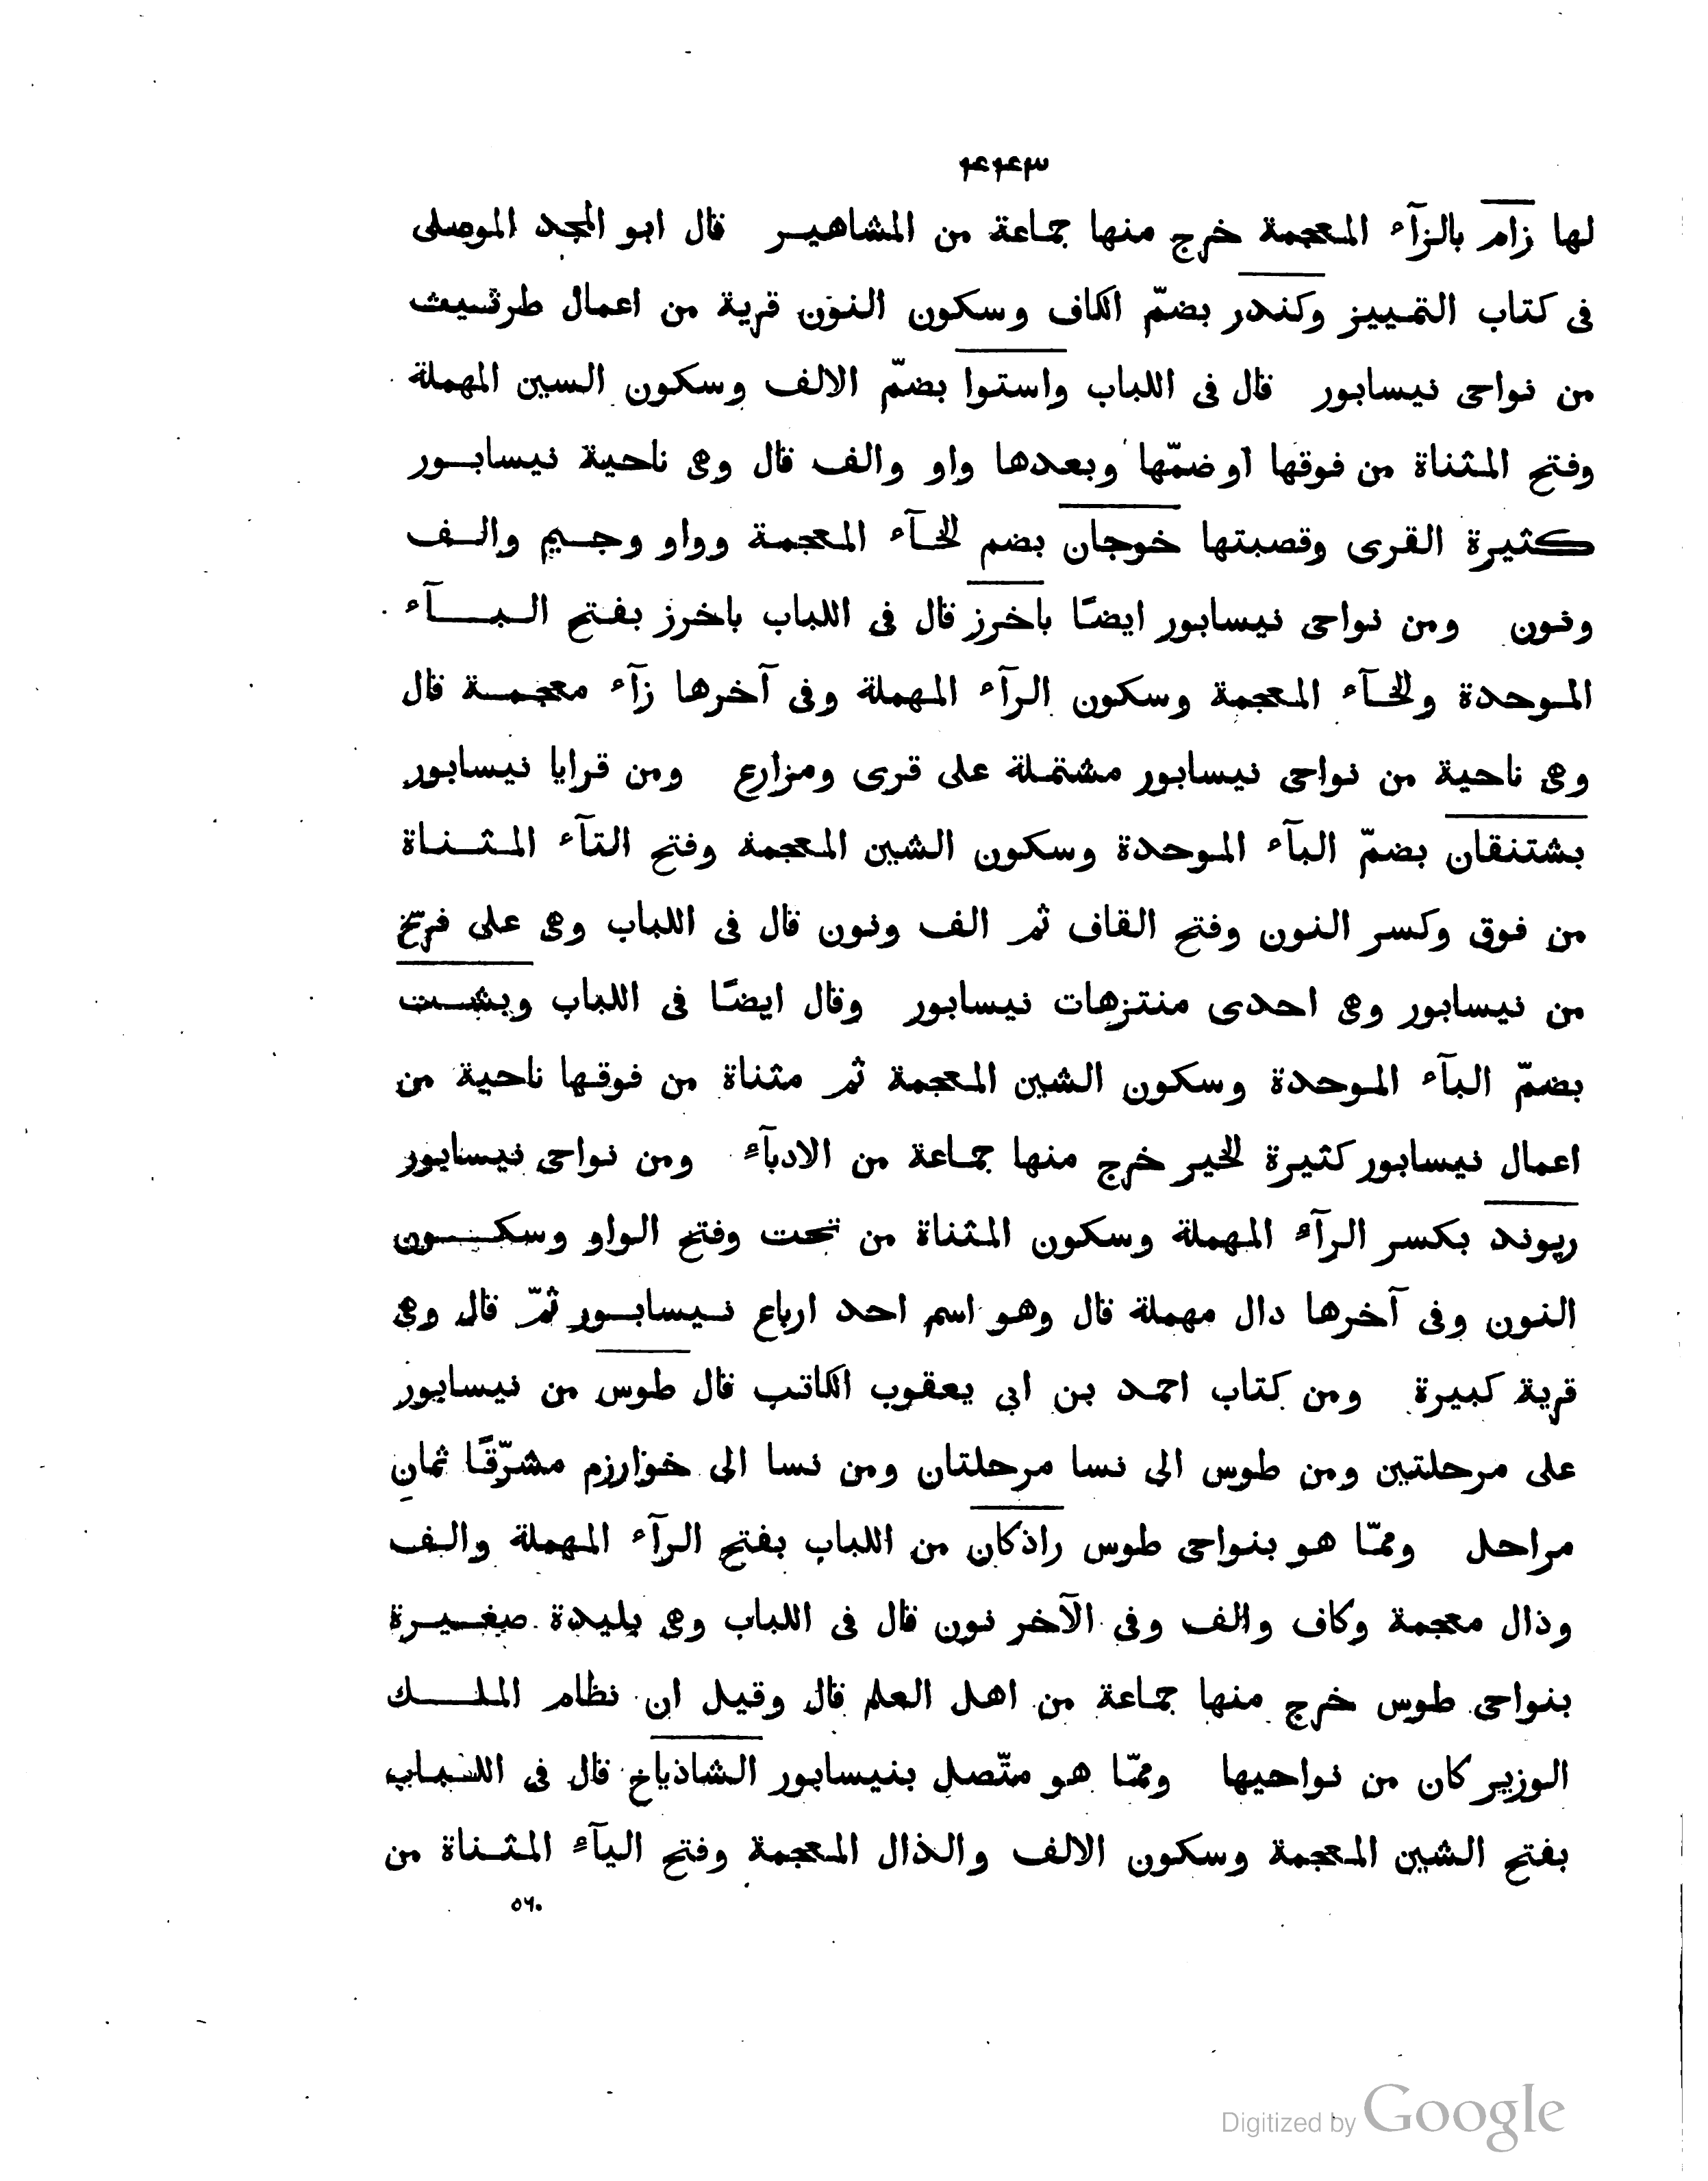 ۴۴۳
لها زام بالزآء المعجمة خرج منها جماعة من المشاهير قال ابو المجد الموصلى
فى كتاب التمييز وكندر بضمّ الكاف وسكون النون قرية من اعمال طرثيث
من نواحى نيسابور قال فى اللباب واستوا بضمّ الالف وسكون السين المهملة
وفتح المثناة من فوقها او ضمّها وبعدها واو والف قال وهى ناحية نيسابور
كثيرة القرى وقصبتها خوجان بضم الخآء المعجمة وواو وجيم والف
ونون ومن نواحى نيسابور ايضًا باخرز قال فى اللباب باخرز بفتح البآء
الموحدة والخآء المعجمة وسكون الرآء المهملة وفى آخرها زآء معجمة قال
وهى ناحية من نواحى نيسابور مشتملة على قرى ومزارع ومن قرايا نيسابور
بشتنقان بضمّ البآء الموحدة وسكون الشين المعجمة وفتح التآء المثناة
من فوق وكسر النون وفتح القاف ثم الف ونون قال فى اللباب وهى على فرسخ
من نيسابور وهى احدى منتزهات نيسابور وقال ايضًا فى اللباب وبشت
بضمّ البآء الموحدة وسكون الشين المعجمة ثم مثناة من فوقها ناحية من
اعمال نيسابور كثيرة الخير خرج منها جماعة من الادبآء ومن نواحى نيسابور
ريوند بكسر الرآء المهملة وسكون المثناة من تحت وفتح الواو وسكون
النون وفى آخرها دال مهملة قال وهو اسم احد ارباع نيسابور ثمّ قال وهى
قرية كبيرة ومن كتاب احمد بن ابى يعقوب الكاتب قال طوس من نيسابور
على مرحلتين ومن طوس الى نسا مرحلتان ومن نسا الى خوارزم مشرّقًا ثمانِ
مراحل وممّا هو بنواحى طوس راذكان من اللباب بفتح الرآء المهملة والف
وذال معجمة وكاف والف وفى الآخر نون قال فى اللباب وهى بليدة صغيرة
بنواحى طوس خرج منها جماعة من اهل العلم قال وقيل ان نظام الملك
الوزير كان من نواحيها وممّا هو متّصل بنيسابور الشاذياخ قال فى اللباب
بفتح الشين المعجمة وسكون الالف والذال المعجمة وفتح اليآء المثناة من
٥٦٠
Digitized by Google